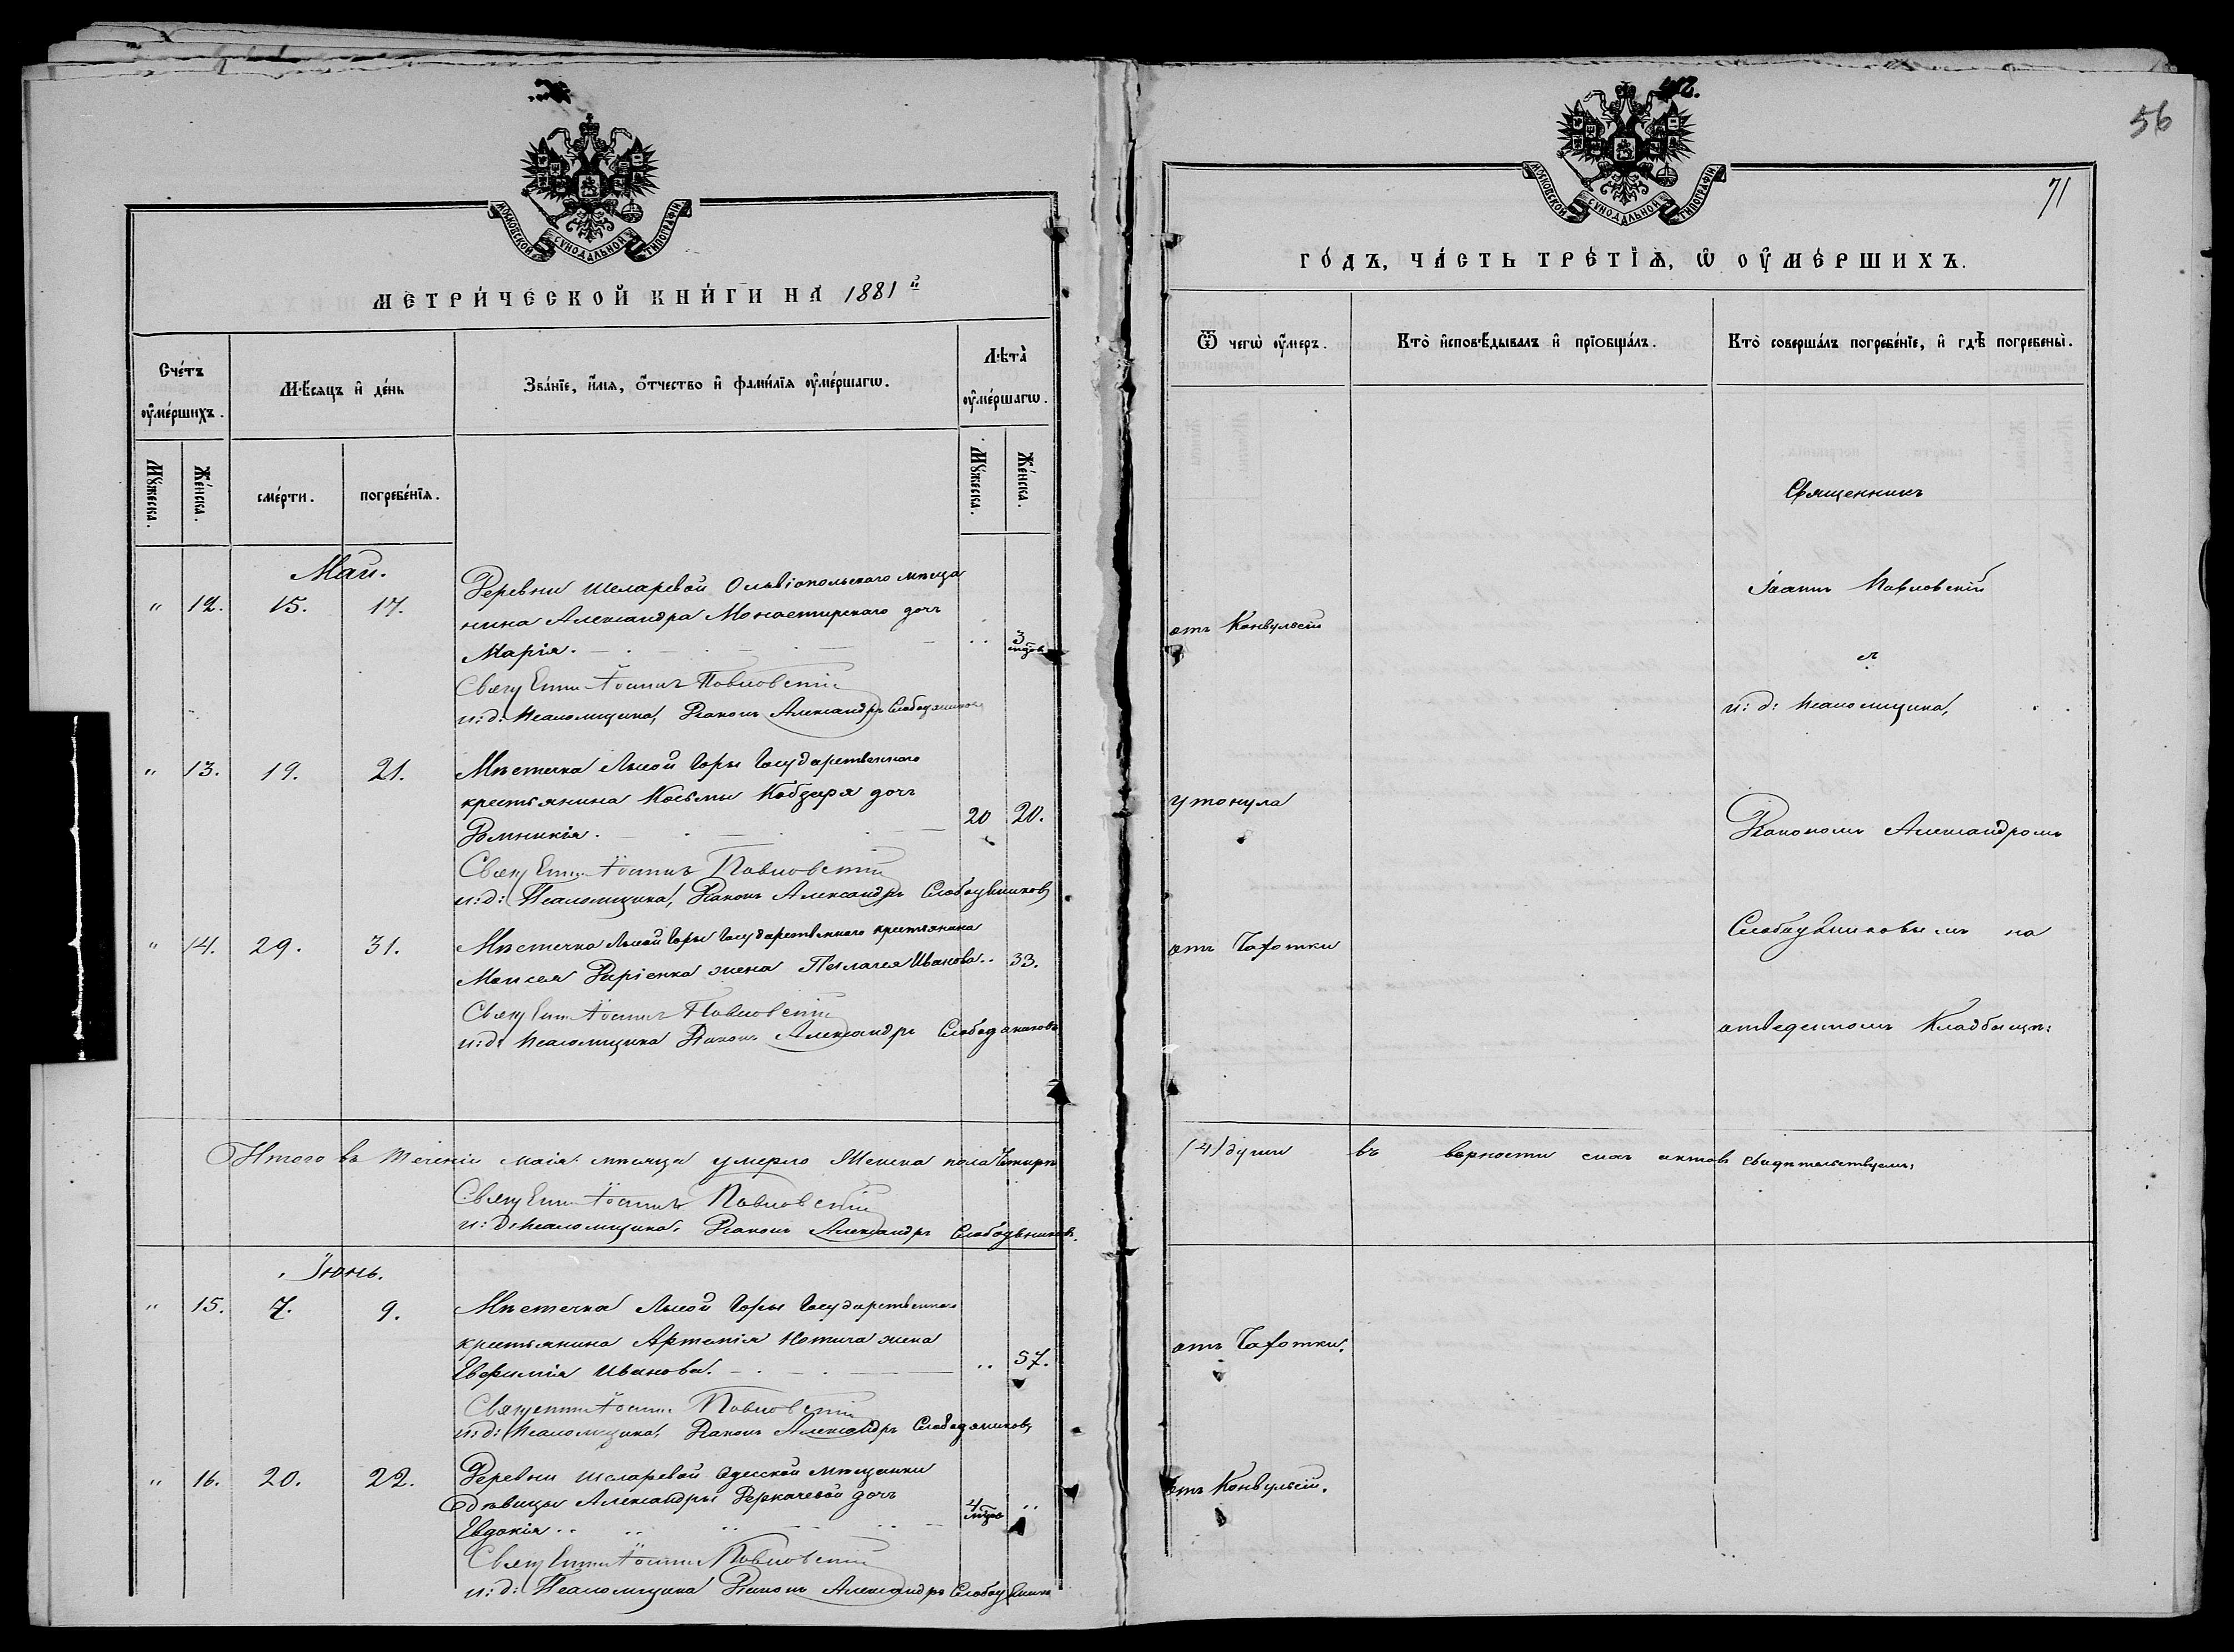 МОСКОВСКОЙ СѴНОДАЛЬНОЙ ТИПОГРАФІИ
МЕТРИ́ЧЕСКОЙ КНИ́ГИ НА 1881й
Сче́тъ ᲂу҆ме́ршихъ.
Мѣ́сяцъ и҆ де́нь
Зва́нїе, и҆́мя, ѻ҆́тчество и҆ фами́лїя ᲂу҆ме́ршагѡ.
Лѣта̀ ᲂу҆ме́ршагѡ.
Мꙋ́жеска.
Же́нска.
сме́рти.
погребе́нїѧ.
Мꙋ́жеска.
Же́нска.
Маи.
" 12. 15. 17. Деревни Шеларевой Ольвіопольского мѣща
нина Александра Монастирского дочь
Марія. .. 3 мѣс.
Священникъ Іоаннъ Павловскій
и: д: псаломщика, Діаконъ Александръ Слободяниковъ
" 13. 19. 21. Мѣстечка Лысой Горы Государственного
крестьянина Косьмы Кобзаря дочь
Домникія. 20 20.
Священникъ Іоаннъ Павловскій
и: д: Псаломщика, Діаконъ Александръ Слободяниковъ
" 14. 29. 31. Мѣстечка Лысой Горы Государственного крестьянина
Моисея жена Пелагея Иванова .. 33.
Священникъ Іоаннъ Павловскій
и: д: псаломщика Діаконъ Александръ Слободяниковъ
Итого въ теченіи маія мѣсяца умерло Женска пола Четыри
Священникъ Іоаннъ Павловскій
и: д: псаломщика, Діаконъ Александръ Слободяниковъ.
Іюнь.
" 15. 7. 9. Мѣстечка Лысой Горы Государственного
крестьянина Артемія жена
Евфимія Иванова. .. 57.
Священникъ Іоаннъ Павловскій
и: д: псаломщика, Діаконъ Александръ Слободяниковъ
" 16. 20. 22. Деревни Шеларевой Одесской мѣщанки
дѣвицы Александры Деркачевой дочь
Евдокія .. 4 мѣс. ..
Священникъ Іоаннъ Павловскій
и: д: Псаломщика Діаконъ Александръ Слободяниковъ
56
МОСКОВСКОЙ СѴНОДАЛЬНОЙ ТИПОГРАФІИ
71
ГО́ДЪ, ЧА́СТЬ ТРЕ́ТЇѦ, Ѡ҆ ОУ҆МЕ́РШИХЪ.
Ѿ чегѡ̀ ᲂу҆́меръ.
Кто̀ и҆сповѣ́дывалъ и҆ прїѡбща́лъ.
Кто̀ соверша́лъ погребе́нїе, и҆ гдѣ̀ погребены̀.
Священникъ
Іоаннъ Павловскій
отъ Конвульсій
и: д: псаломщика,
утонула
Діакономъ Александромъ
отъ Чахотки
Слободяниковымъ на
отведенномъ Кладбищѣ:
(4) души въ вѣрности сихъ актовъ свидѣтельствуемъ:
отъ Чахотки.
отъ Конвульсій.